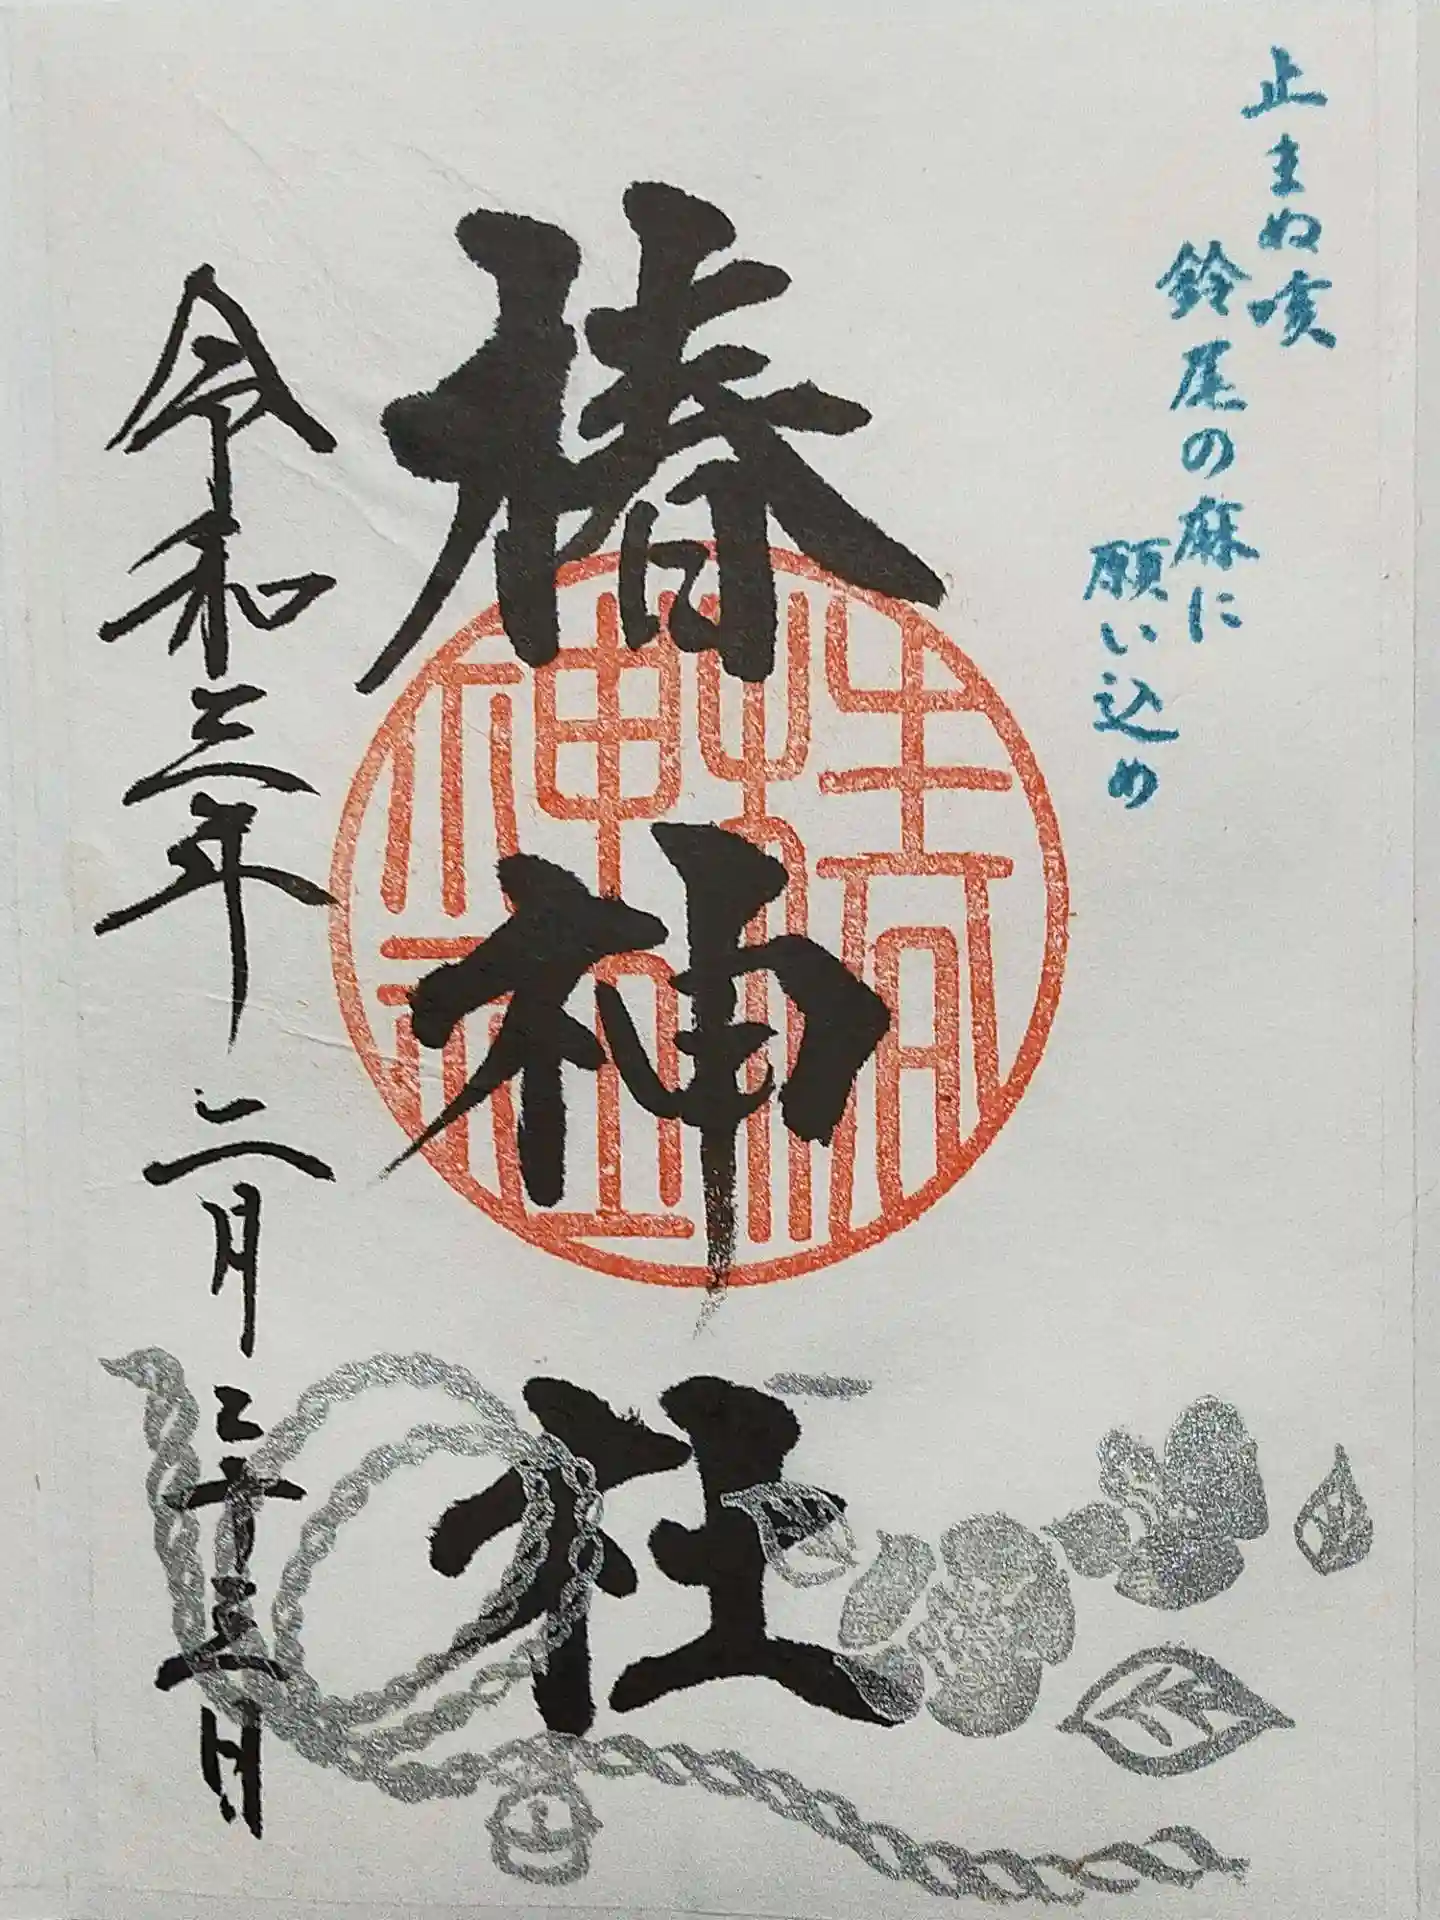 止まぬ咳
鈴尾の麻に
願い込め
椿神社
椿神社
令和三年二月二十三日